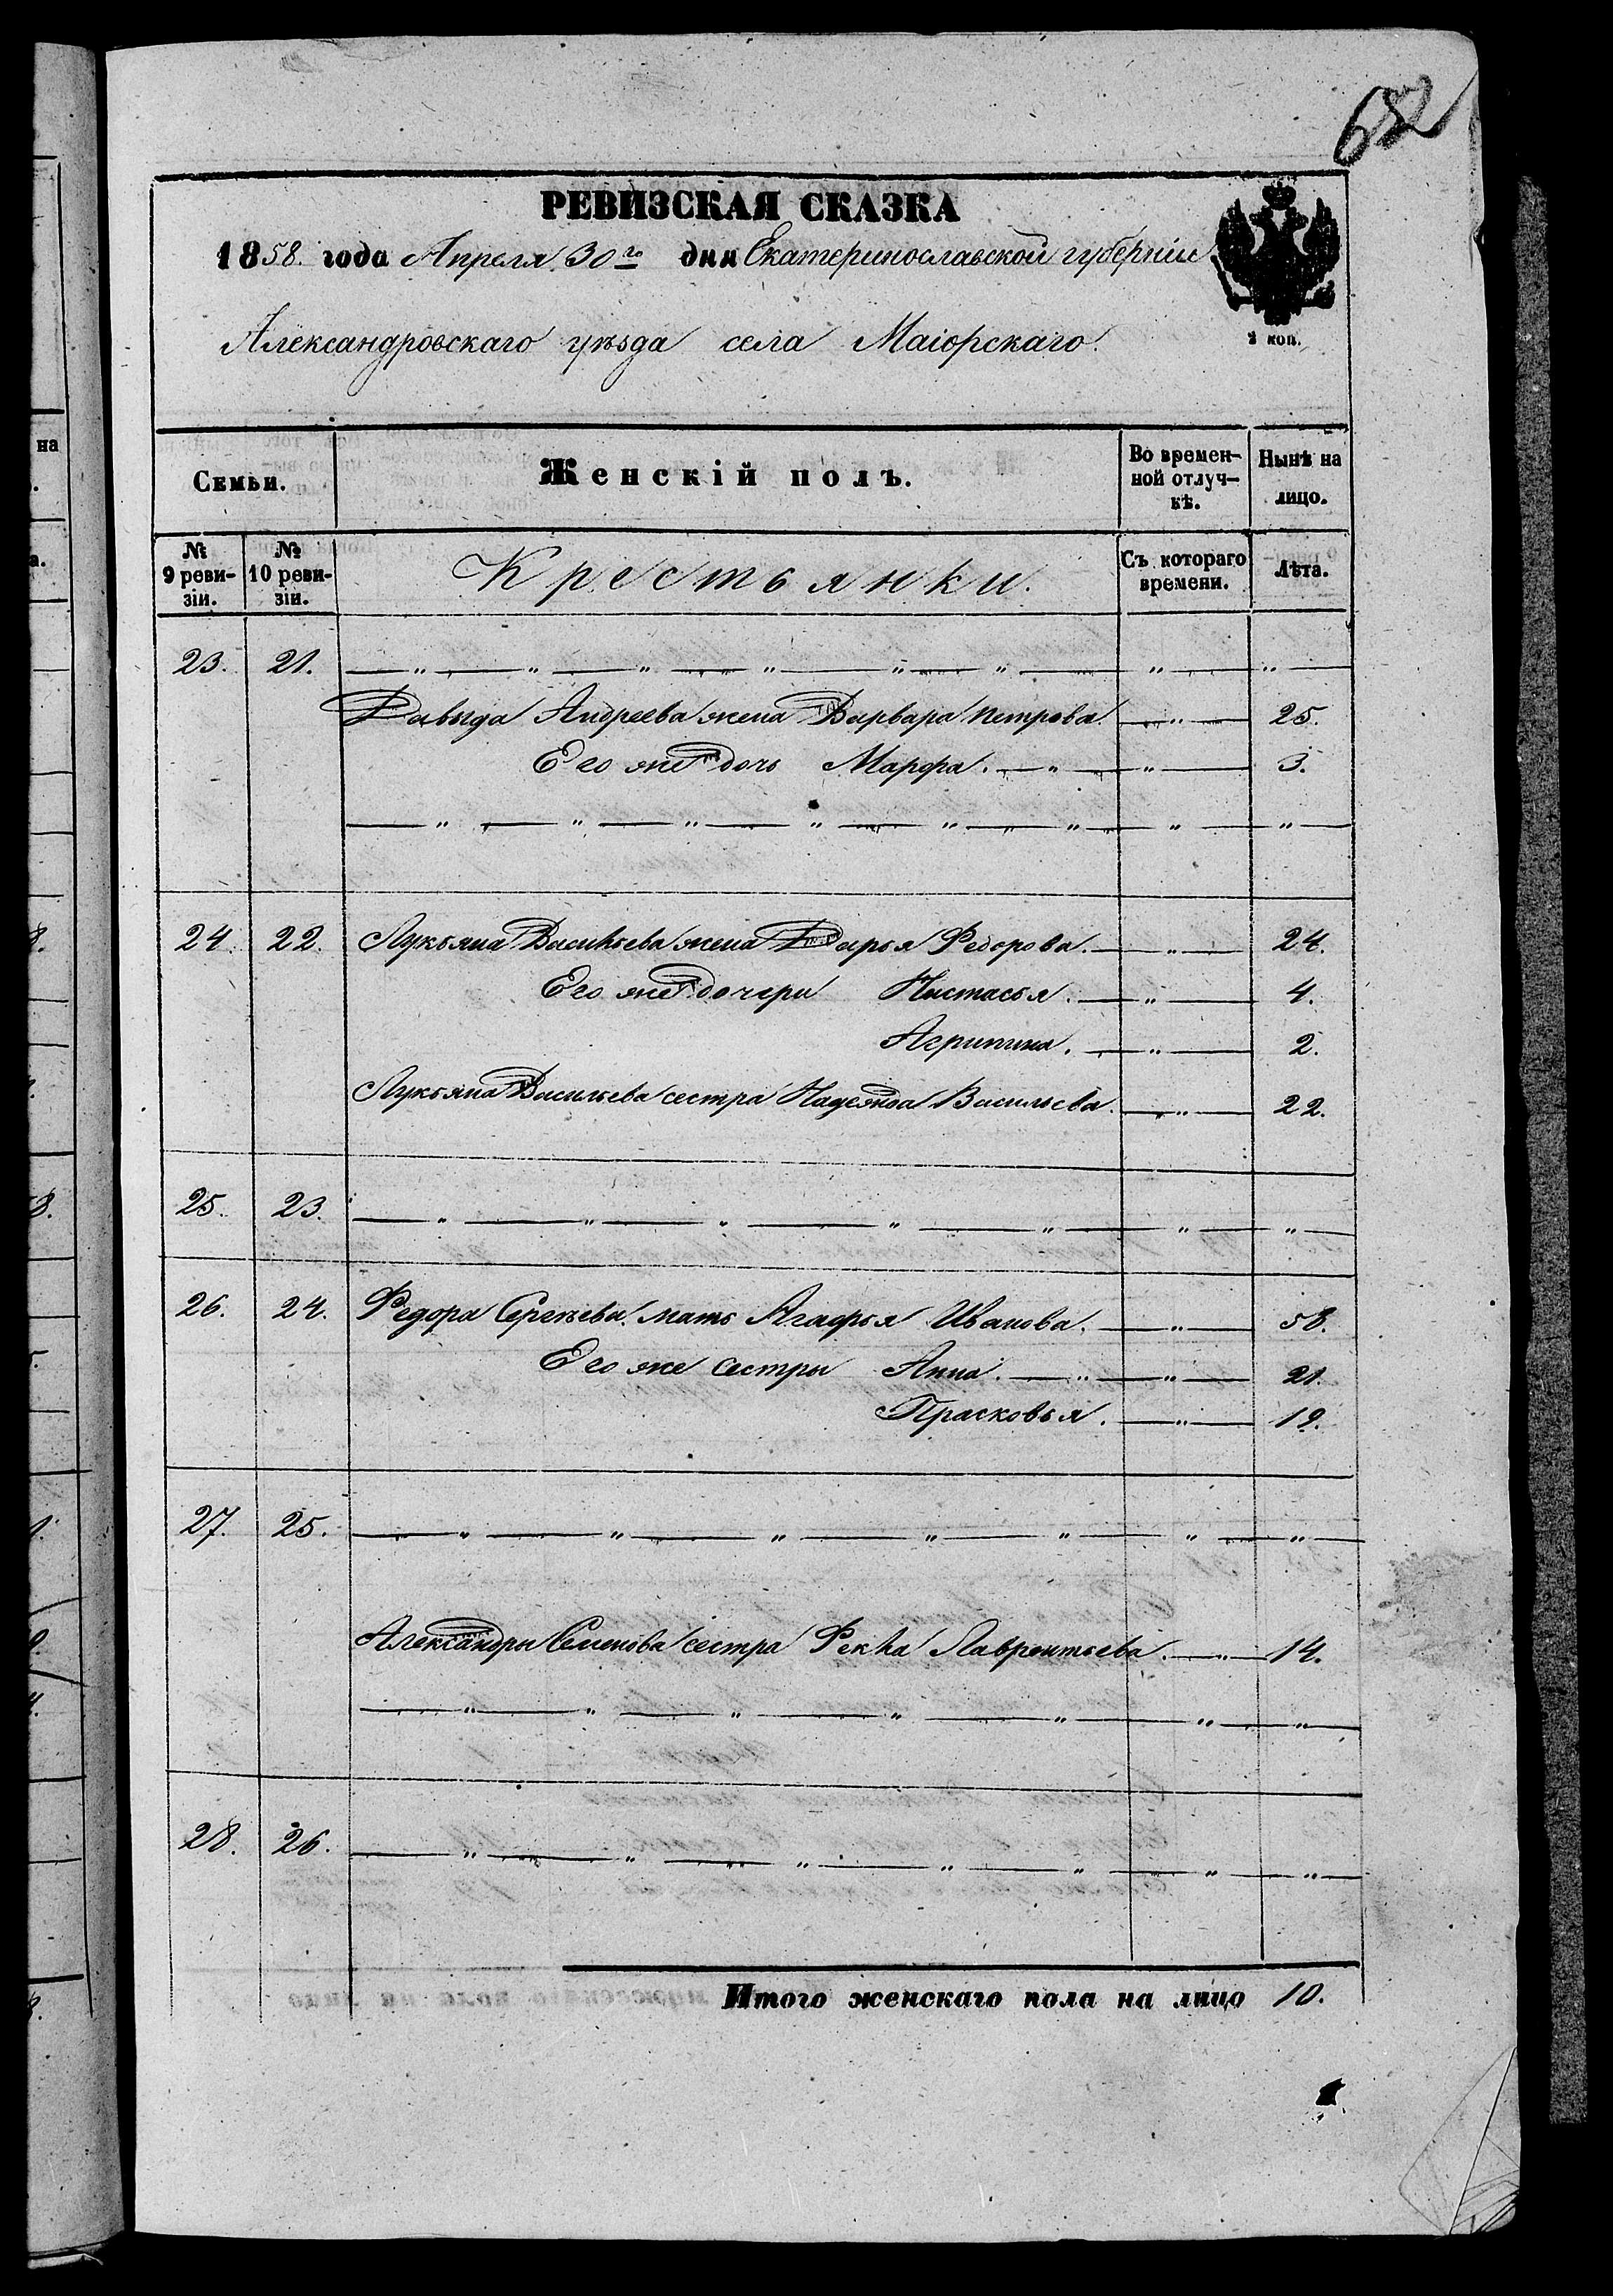 652
РЕВИЗСКАЯ СКАЗКА
1858. года Апреля 30го дня Екатеринославской губерніи
Александровскаго уѣзда села Маіорскаго.
2 коп.
Семьи. Женскій полъ. Во времен-ной отлуч-кѣ. Нынѣ на лицо.
№ 9 реви-зіи. № 10 реви-зіи. Крестьянки. Съ котораго времени. Лѣта.
23. 21. — „ — „ — „ — „ — „ — „ — „ — „ —
Давыда Андреева жена Варвара Петрова. — „ — 25.
Его же дочь Марфа. — „ — „ — 3.
— „ — „ — „ — „ — „ — „ — „ — „ —
24. 22. Лукьяна Васильева жена Дарья Федорова. — „ — 24.
Его же дочери Настасья. — „ — 4.
Агрипина. — „ — 2.
Лукьяна Васильева сестра Надежда Васильева. — „ — 22.
25. 23. — „ — „ — „ — „ — „ — „ — „ —
26. 24. Федора Сергѣева мать Агафья Иванова. — „ — 58.
Его же сестры Анна. — „ — „ — 21.
Прасковья. — „ — 19.
27. 25. — „ — „ — „ — „ — „ — „ — „ —
Александры Семенова сестра Фекла Лаврентьева. — „ — 14.
— „ — „ — „ — „ — „ — „ — „ —
28. 26. — „ — „ — „ — „ — „ — „ — „ —
Итого женскаго пола на лицо 10.